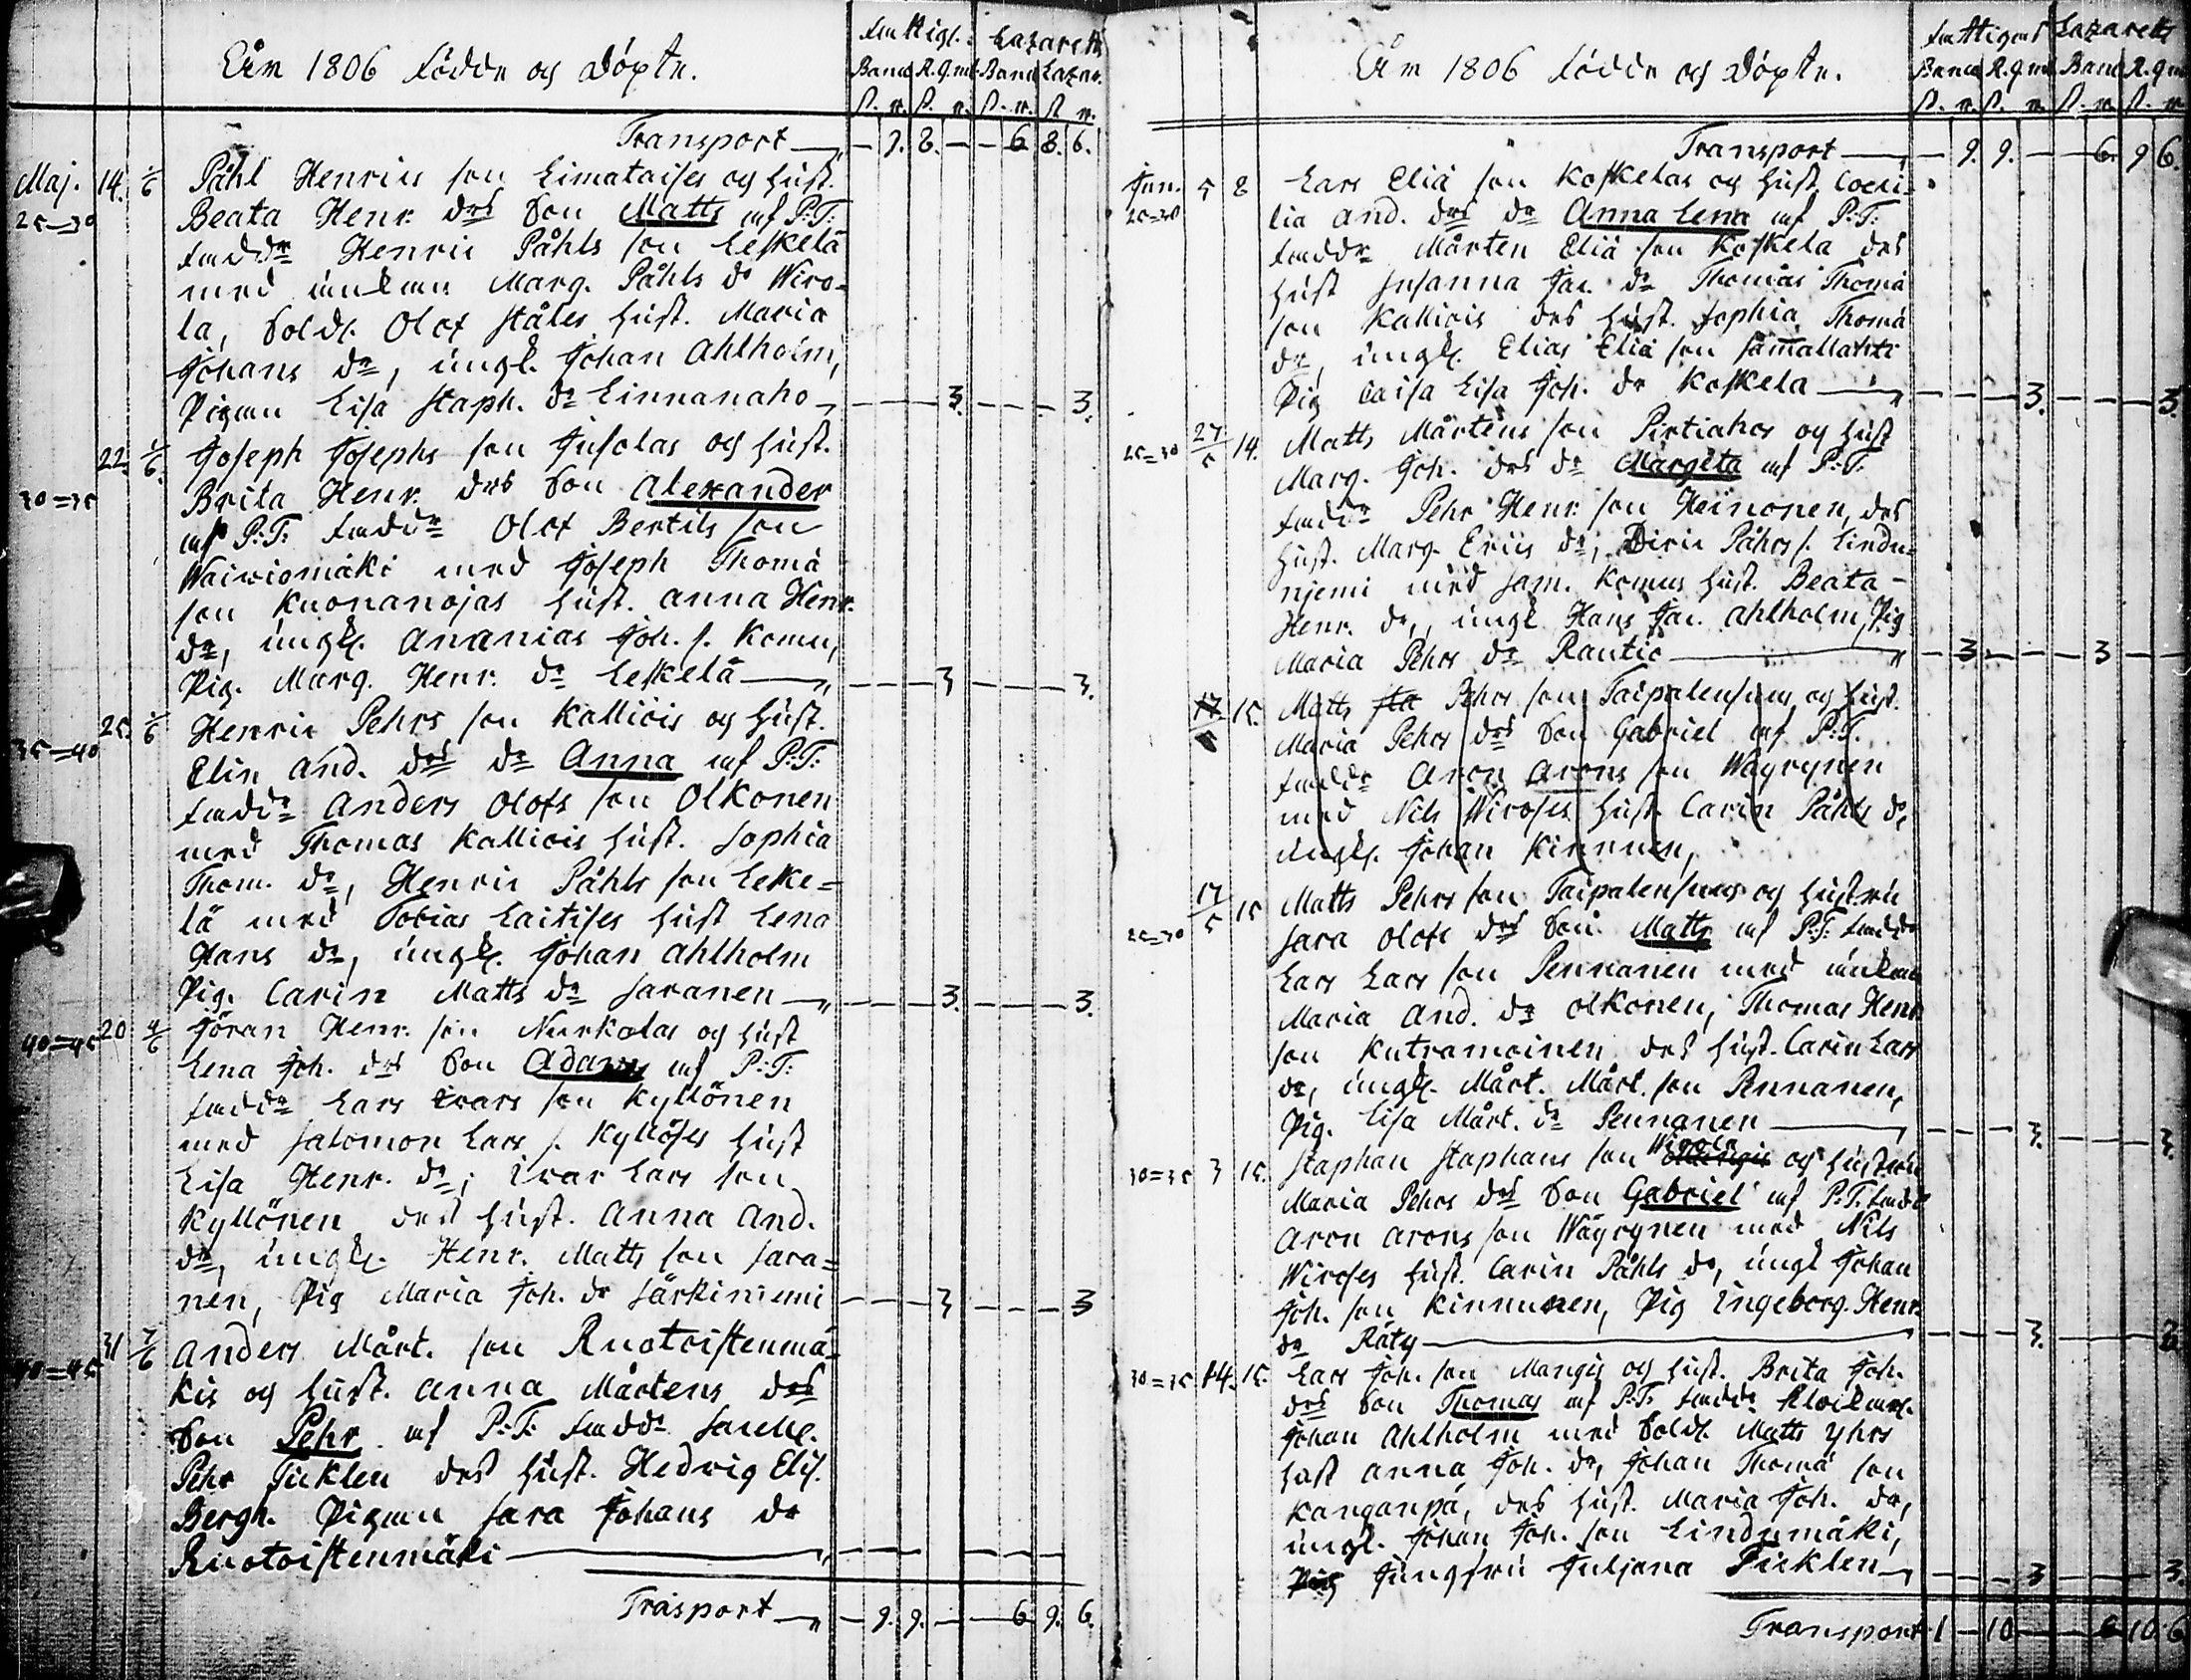 Åhr 1806 födde og Döpte.
Fattigt. Lazarett
Banco R.gml. Banco Lazar.
s. r. s. r. s. r. s. r.
Transport — 9. 8. — — 6 8. 6.
Maj. 14. 1/6 Påhl Henrics son Limataises og Hust.
25=30 Beata Henr. drs Son Matts af P:T:
fadd:r Henric Påhls son Leskelä
med enkan Marg. Påhls dr Wiro-
la, Sold. Olof Ståles Hust. Maria
Johans dr, ungk. Johan Ahlholm,
Pigan Lisa Staph. dr Linnanaho — — — 3. — — — 3.
22. 1/6. Joseph Josephs son Jusolas og Hust.
30=35 Brita Henr. drs Son Alexander
af P:T: fadd:r Olof Bertils son
Waiwiomäki med Joseph Thomä
son Kuonanojas Hust. Anna Henr.
dr, ungk. Ananias Joh. s. Komu,
Pig. Marg. Henr. dr Leskelä — — — 3 — — — 3.
25. 1/6 Henric Pehrs son Kalliois og Hust.
35=40 Elin And. drs dr Anna af P:T:
fadd:r Anders Olofs son Olkonen
med Thomas Kalliois Hust. Sophia
Thom. dr, Henric Påhls son Leske=
lä med Tobias Laitises Hust Lena
Hans dr, ungk. Johan Ahlholm
Pig. Carin Matts dr Saranen — — — 3. — — — 3.
40=45 20 4/6 Jöran Henr. son Nurkalas og Hust
Lena Joh. drs Son Adam af P:T:
fadd:r Lars Ivars son Kyllönen
med Salomon Lars s. Kyllöses Hust
Lisa Henr. dr; Ivar Lars son
Kyllönen des Hust. Anna And.
dr, ungk. Henr. Matts son Sara=
nen, Pig Maria Joh. dr Särkiniemi — — — 3 — — — 3
40=45 31 7/6 Anders Mårt. son Ruotoistenmä-
kis og Hust. Anna Mårtens drs
Son Pehr af P:T: fadd:r
Pehr Ticklen des Hust. Hedvig Elis.
Bergh. Pigan Sara Johans dr
Ruotoistenmäki — — — — — —
Trasport — 9. 9. — — 6 9. 6.
Åhr 1806 födde og Döpte.
Fattigas Lazarett
Banco R.gml Banco R.gml
s. r. s. r. s. r. s. r.
Transport — 9. 9. — — 6. 9 6.
Jun. 5 8 Lars Eliä son Koskelas og Hust Coeci-
25=30 lia And. drs dr Anna Lena af P:T:
fadd:r Mårten Eliä son Koskela des
Hust Susanna Jac. dr Thomas Thomä
son Kallioi des Hust. Sophia Thomä
dr, ungk. Elias Eliä son Jämallahti
Pig Caisa Lisa Joh. dr Koskela — — — 3. — — — 3.
25=30 27/5 14. Matts Mårtens son Pirtiahos og Hust
Marg. Joh. drs dr Margeta af P:T:
fadd:r Pehr Henr. son Heinonen, des
Hust. Marg. Erics dr, Diric Påhrs s. Lindu=
njemi med Sam. Komus Hust. Beata
Henr. dr, ungk Hans Jac. Ahlholm, Pig
Maria Pehrs dr Rautio — 3. — — 3 — —
17/5 15. Matts Sta Pehrs son Taipalensuus og Hust.
Maria Pehrs drs Son Gabriel af P:T.
fadd:r Aron Arons son Wäyrynen
med Nils Wiroses Hust. Carin Påhls dr
ungk. Johan Kinnunen,
17/5 15 Matts Pehrs son Taipalensuus og Hustru
25=30 Sara Olofs drs Son Matts af P:T: fadd:r
Lars Lars son Pennanen med enkan
Maria And. dr Olkonen, Thomas Henr
son Kutramoinen des Hust. Carin Lars
dr, ungk. Mårt. Mårt. son Pennanen,
Pig. Lisa Mårt. dr Pennanen — — — 3. — — — 3.
30=35 3 15. Staphan Staphans son Wirola og Hustru
Maria Pehrs drs Son Gabriel af P:T: fadd:r
Aron Arons son Wäyrynen med Nils
Wiroses Hust. Carin Påhls dr, ungk Johan
Joh. son Kinnunen, Pig Ingeborg Henr.
dr Räty — — — 3. — — — 3.
30=35 14. 15. Lars Joh. son Mangis og Hust. Brita Joh.
drs Son Thomas af P:T: fadd:r Klockar.
Johan Ahlholm med Sold. Matts Yhrs
Hust Anna Joh. dr, Johan Thomä son
Kanganpä, des Hust. Maria Joh. dr,
ungk. Johan Joh. son Lindumäki,
Pig Jungfru Juljana Ticklen — — — 3 — — — 3.
Transport 1 — 10 — — 6 10. 6